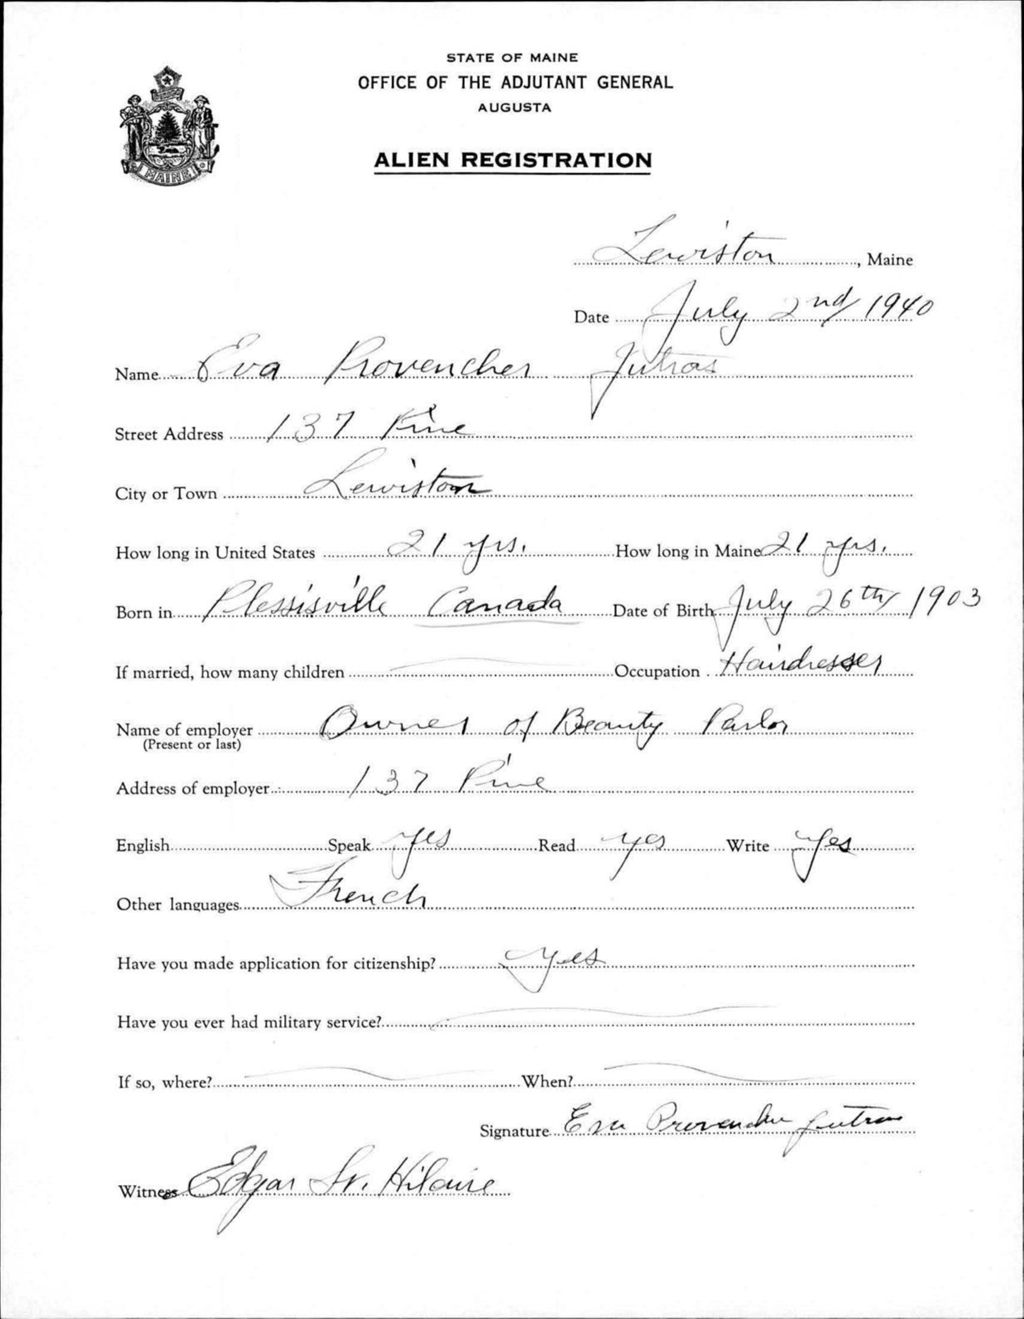 STATE OF MAINE
OFFICE OF THE ADJUTANT GENERAL
AUGUSTA
ALIEN REGISTRATION
MAINE
Lewiston, Maine
Date July 2nd 1940
Name Eva Provencher Jutras
Street Address 137 Pine
City or Town Lewiston
How long in United States 21 yrs. How long in Maine 21 yrs.
Born in Plessisville Canada Date of Birth July 26th 1903
If married, how many children Occupation Hairdresser
Name of employer Owner of Beauty Parlor
(Present or last)
Address of employer 137 Pine
English Speak yes Read yes Write yes
Other languages French
Have you made application for citizenship? Yes
Have you ever had military service?
If so, where? When?
Signature Eva Provencher Jutras
Witness Edgar St. Hilaire